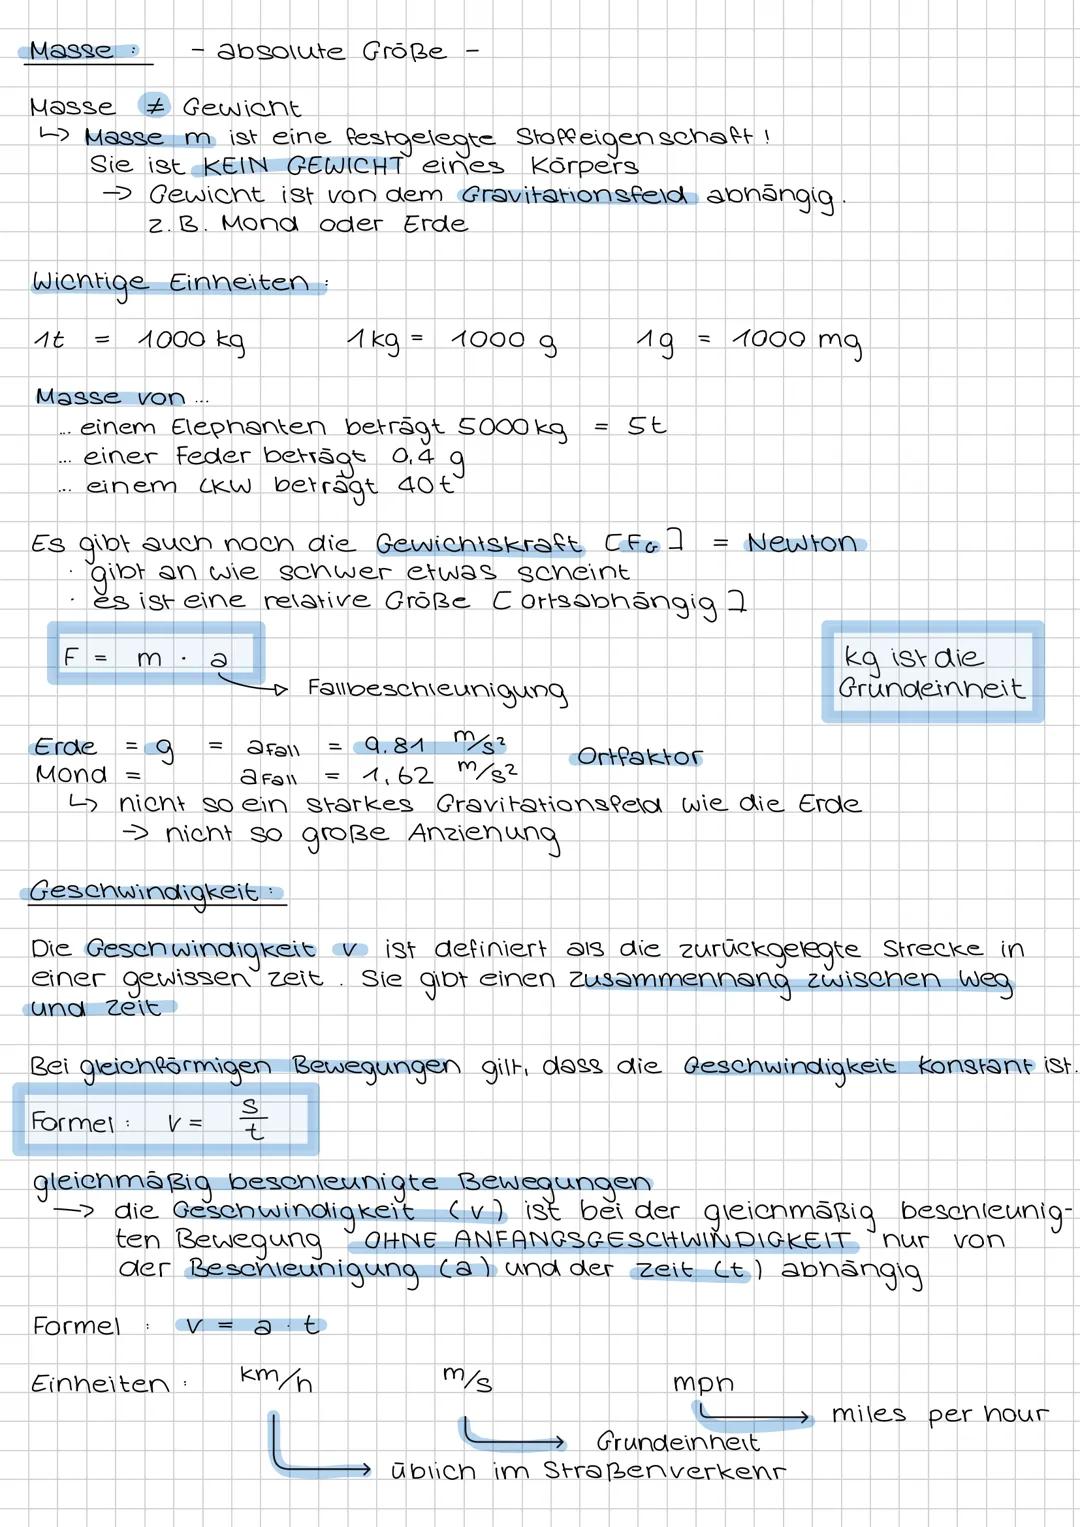 Masse : - absolute Größe -
Masse ≠ Gewicht
↳ Masse m ist eine festgelegte Stoffeigenschaft !
Sie ist KEIN GEWICHT eines Körpers
→ Gewicht ist von dem Gravitationsfeld abhängig .
z. B. Mond oder Erde
Wichtige Einheiten :
1t = 1000 kg 1kg = 1000 g 1g = 1000 mg
Masse von ...
... einem Elephanten beträgt 5000 kg = 5t
... einer Feder beträgt 0,4 g
... einem LKW beträgt 40t
Es gibt auch noch die Gewichtskraft [FG] = Newton
· gibt an wie schwer etwas scheint
· es ist eine relative Größe [ortsabhängig]
F = m · a
→ Fallbeschleunigung
kg ist die
Grundeinheit
Erde = g = aFall = 9.81 m/s²
Ortfaktor
Mond = aFall = 1,62 m/s²
↳ nicht so ein starkes Gravitationsfeld wie die Erde
→ nicht so große Anziehung
Geschwindigkeit :
Die Geschwindigkeit v ist definiert als die zurückgelegte Strecke in
einer gewissen Zeit . Sie gibt einen Zusammenhang zwischen Weg
und Zeit
Bei gleichförmigen Bewegungen gilt, dass die Geschwindigkeit konstant ist.
Formel : v = s/t
gleichmäßig beschleunigte Bewegungen
→ die Geschwindigkeit (v) ist bei der gleichmäßig beschleunig-
ten Bewegung OHNE ANFANGSGESCHWINDIGKEIT nur von
der Beschleunigung (a) und der Zeit (t) abhängig
Formel : v = a · t
Einheiten : km/h m/s mph
→ miles per hour
→ Grundeinheit
→ üblich im Straßenverkehr